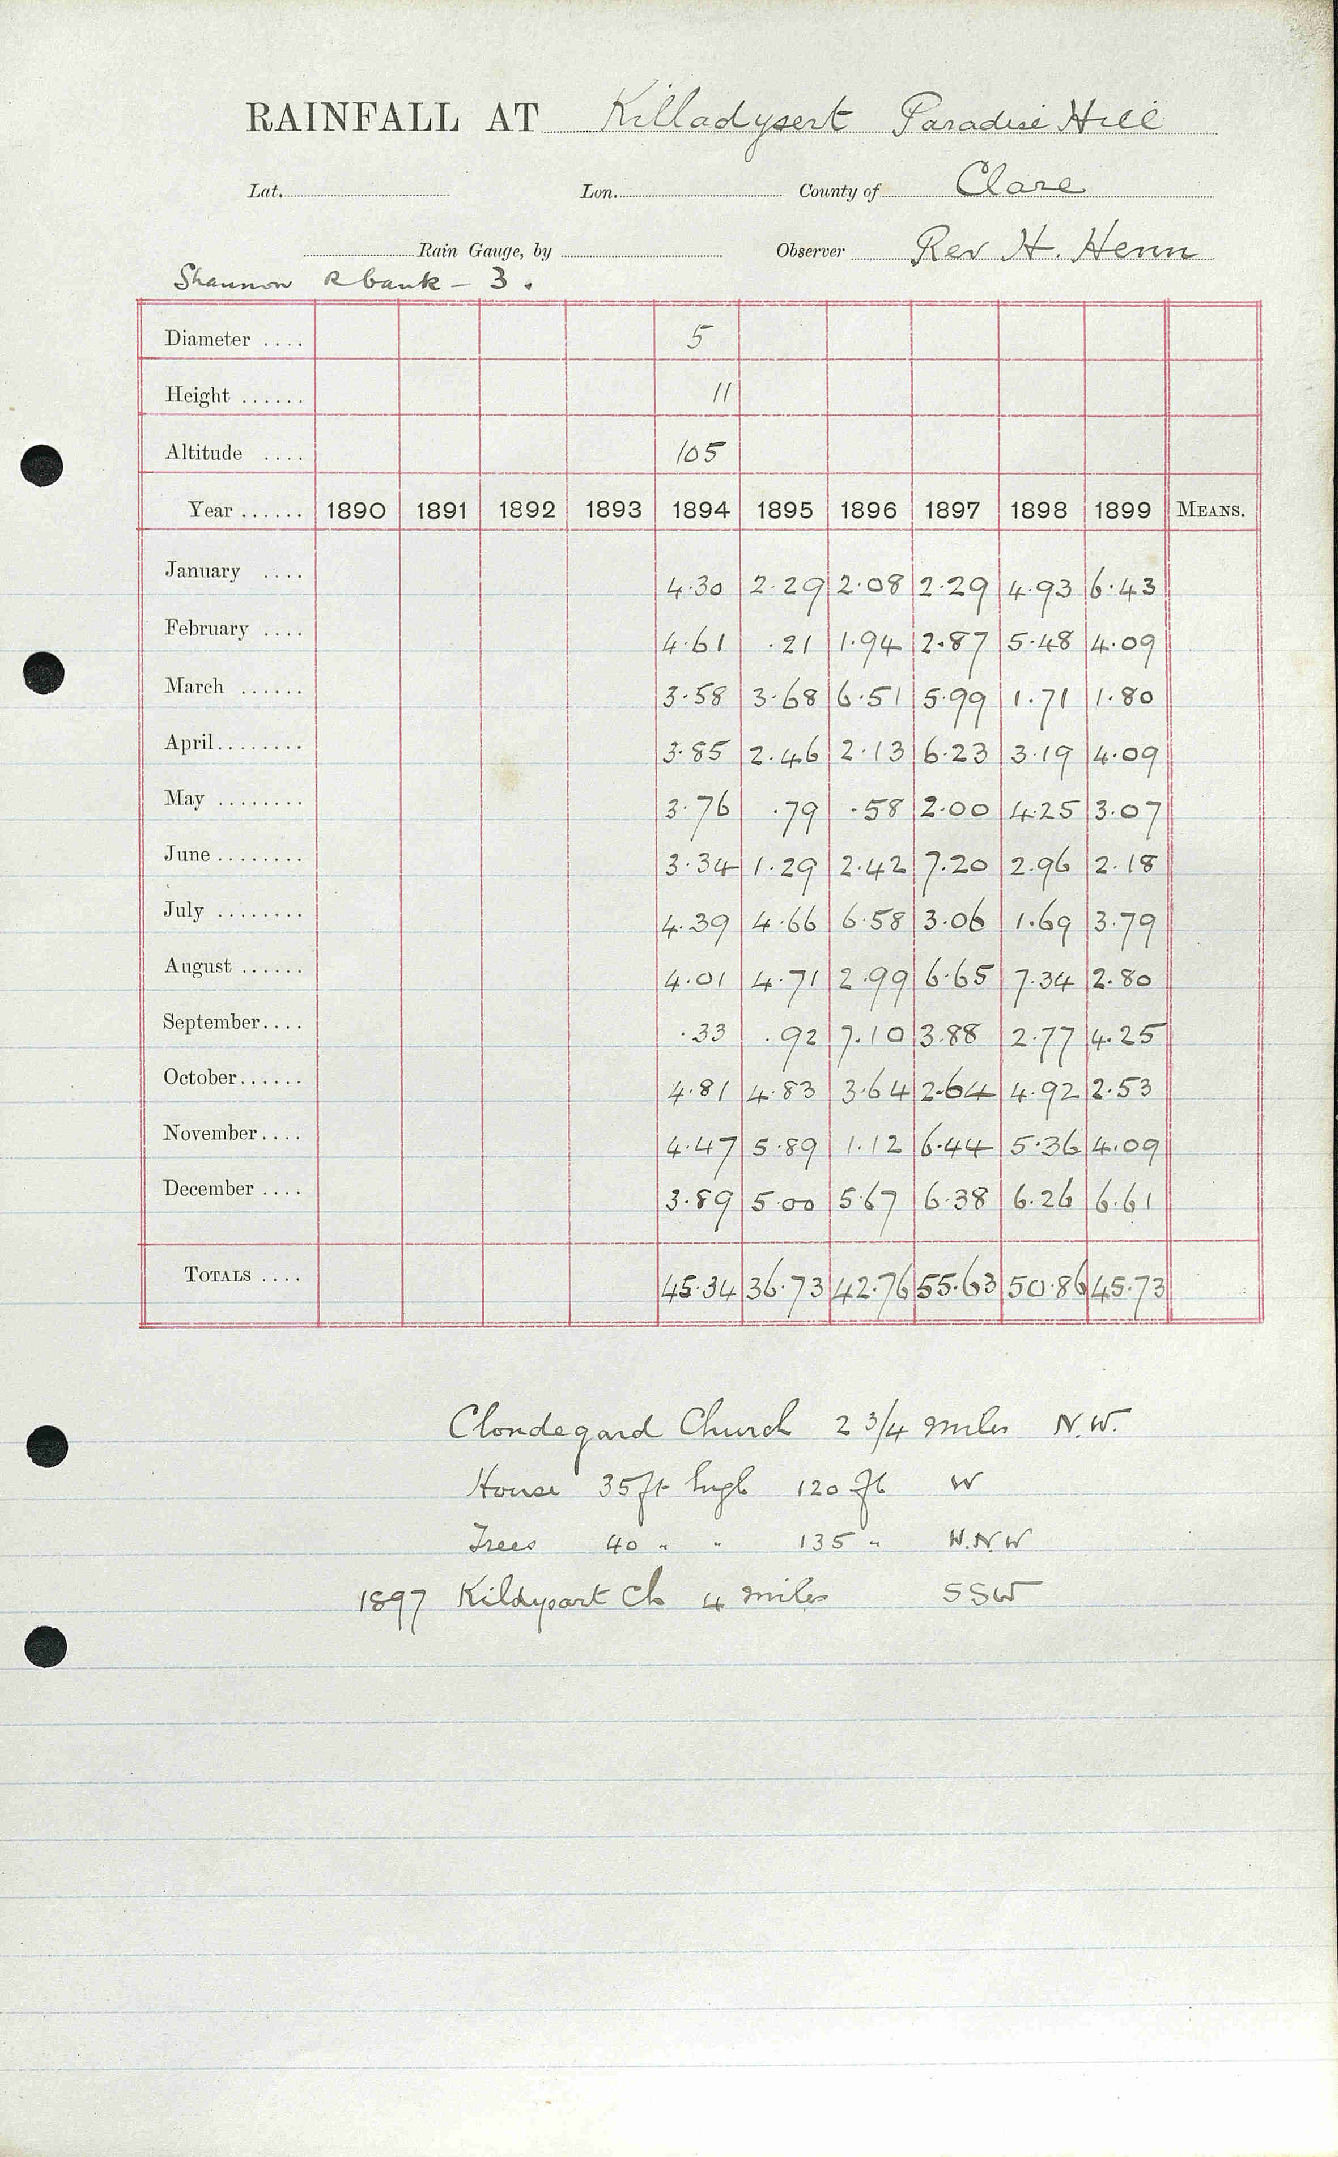 RAINFALL AT Killadysert Paradise Hill
Lat. Lon. County of Clare
Rain Gauge, by Observer Rev H. Henn
Shannon R bank - 3.
Diameter .... 5
Height ...... 11
Altitude .... 105
Year ...... 1890 1891 1892 1893 1894 1895 1896 1897 1898 1899 MEANS.
January .... 4.30 2.29 2.08 2.29 4.93 6.43
February .... 4.61 .21 1.94 2.87 5.48 4.09
March ...... 3.58 3.68 6.51 5.99 1.71 1.80
April........ 3.85 2.46 2.13 6.23 3.19 4.09
May ........ 3.76 .79 .58 2.00 4.25 3.07
June ........ 3.34 1.29 2.42 7.20 2.96 2.18
July ........ 4.39 4.66 6.58 3.06 1.69 3.79
August ...... 4.01 4.71 2.99 6.65 7.34 2.80
September.... .33 .92 7.10 3.88 2.77 4.25
October...... 4.81 4.83 3.64 2.64 4.92 2.53
November.... 4.47 5.89 1.12 6.44 5.36 4.09
December .... 3.89 5.00 5.67 6.38 6.26 6.61
TOTALS .... 45.34 36.73 42.76 55.63 50.86 45.73
Clondegard Church 2 3/4 miles N.W.
House 35ft high 120 ft W
Trees 40 " " 135 " W.N.W
1897 Kildysart Ch 4 miles SSW